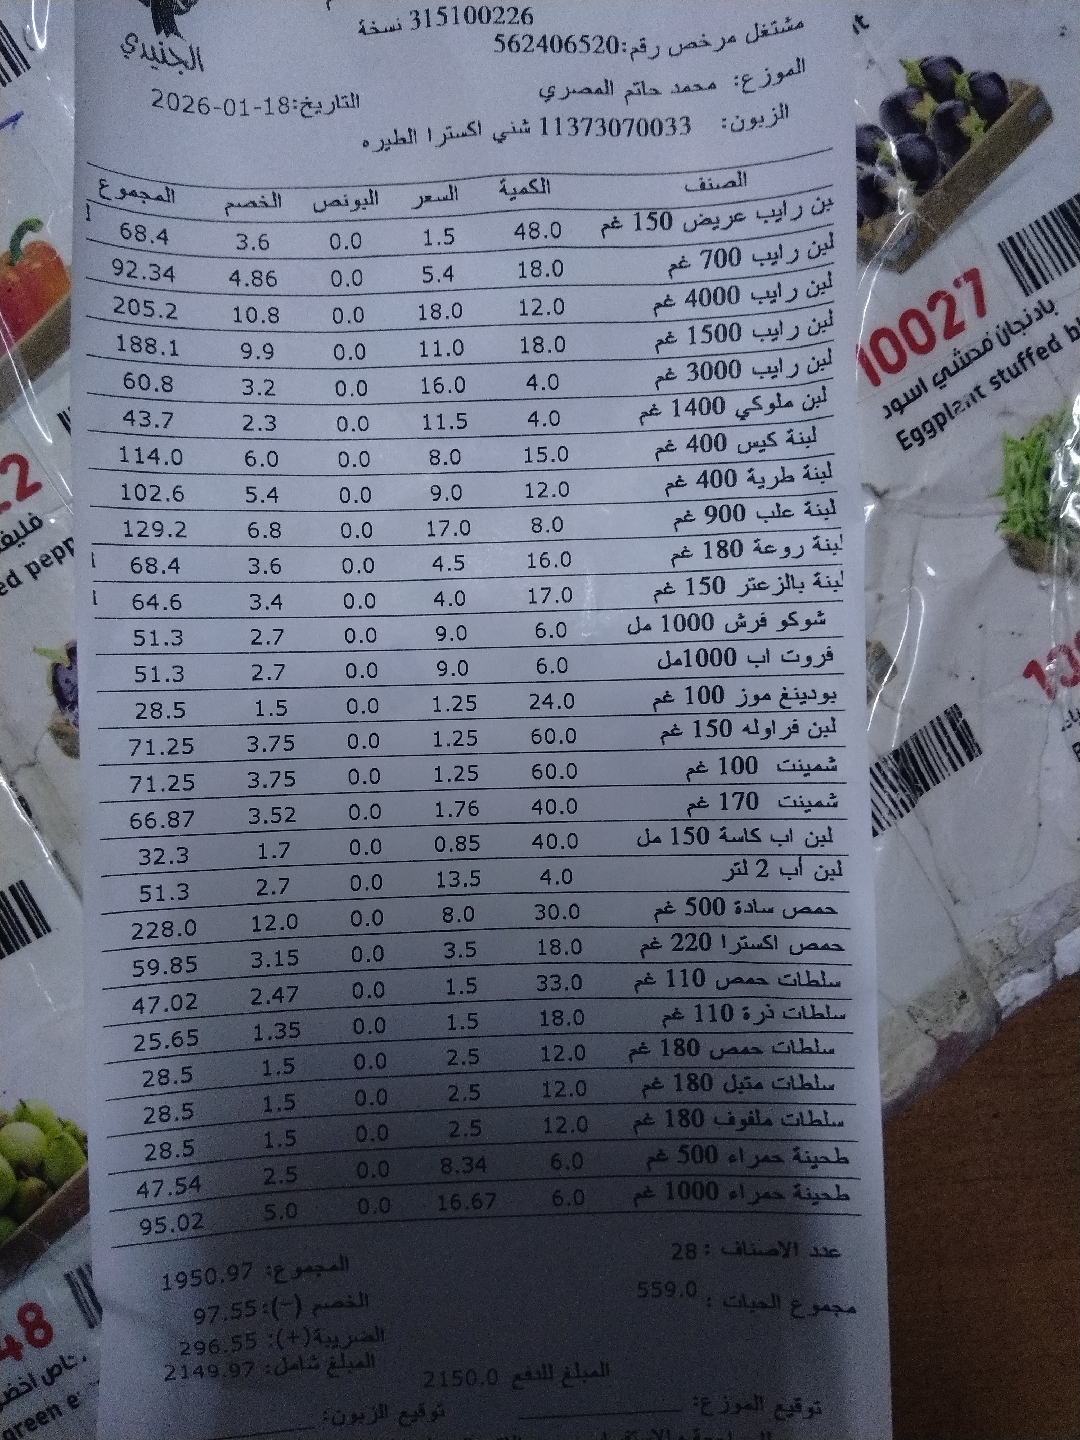 الجنيدي
315100226 نسخة
مشتغل مرخص رقم:562406520
الموزع: محمد حاتم المصري
التاريخ:2026-01-18
الزبون: 11373070033 شني اكسترا الطيره
الصنف الكمية السعر البونص الخصم المجموع
بن رايب عريض 150 غم 48.0 1.5 0.0 3.6 68.4
لبن رايب 700 غم 18.0 5.4 0.0 4.86 92.34
لبن رايب 4000 غم 12.0 18.0 0.0 10.8 205.2
لبن رايب 1500 غم 18.0 11.0 0.0 9.9 188.1
لبن رايب 3000 غم 4.0 16.0 0.0 3.2 60.8
لبن ملوكي 1400 غم 4.0 11.5 0.0 2.3 43.7
لبنة كيس 400 غم 15.0 8.0 0.0 6.0 114.0
لبنة طرية 400 غم 12.0 9.0 0.0 5.4 102.6
لبنة علب 900 غم 8.0 17.0 0.0 6.8 129.2
لبنة روعة 180 غم 16.0 4.5 0.0 3.6 68.4
لبنة بالزعتر 150 غم 17.0 4.0 0.0 3.4 64.6
شوكو فرش 1000 مل 6.0 9.0 0.0 2.7 51.3
فروت اب 1000مل 6.0 9.0 0.0 2.7 51.3
بودينغ موز 100 غم 24.0 1.25 0.0 1.5 28.5
لبن فراوله 150 غم 60.0 1.25 0.0 3.75 71.25
شمينت 100 غم 60.0 1.25 0.0 3.75 71.25
شمينت 170 غم 40.0 1.76 0.0 3.52 66.87
لبن اب كاسة 150 مل 40.0 0.85 0.0 1.7 32.3
لبن أب 2 لتر 4.0 13.5 0.0 2.7 51.3
حمص سادة 500 غم 30.0 8.0 0.0 12.0 228.0
حمص اكسترا 220 غم 18.0 3.5 0.0 3.15 59.85
سلطات حمص 110 غم 33.0 1.5 0.0 2.47 47.02
سلطات ذرة 110 غم 18.0 1.5 0.0 1.35 25.65
سلطات حمص 180 غم 12.0 2.5 0.0 1.5 28.5
سلطات متبل 180 غم 12.0 2.5 0.0 1.5 28.5
سلطات ملفوف 180 غم 12.0 2.5 0.0 1.5 28.5
طحينة حمراء 500 غم 6.0 8.34 0.0 2.5 47.54
طحينة حمراء 1000 غم 6.0 16.67 0.0 5.0 95.02
عدد الاصناف : 28
المجموع: 1950.97
مجموع الحبات : 559.0
الخصم (-): 97.55
الضريبة(+): 296.55
المبلغ شامل: 2149.97
المبلغ للدفع 2150.0
توقيع الموزع:
توقيع الزبون:
10027
باذنجان محشي اسود
Eggplant stuffed bl
ed pepp
48
green e